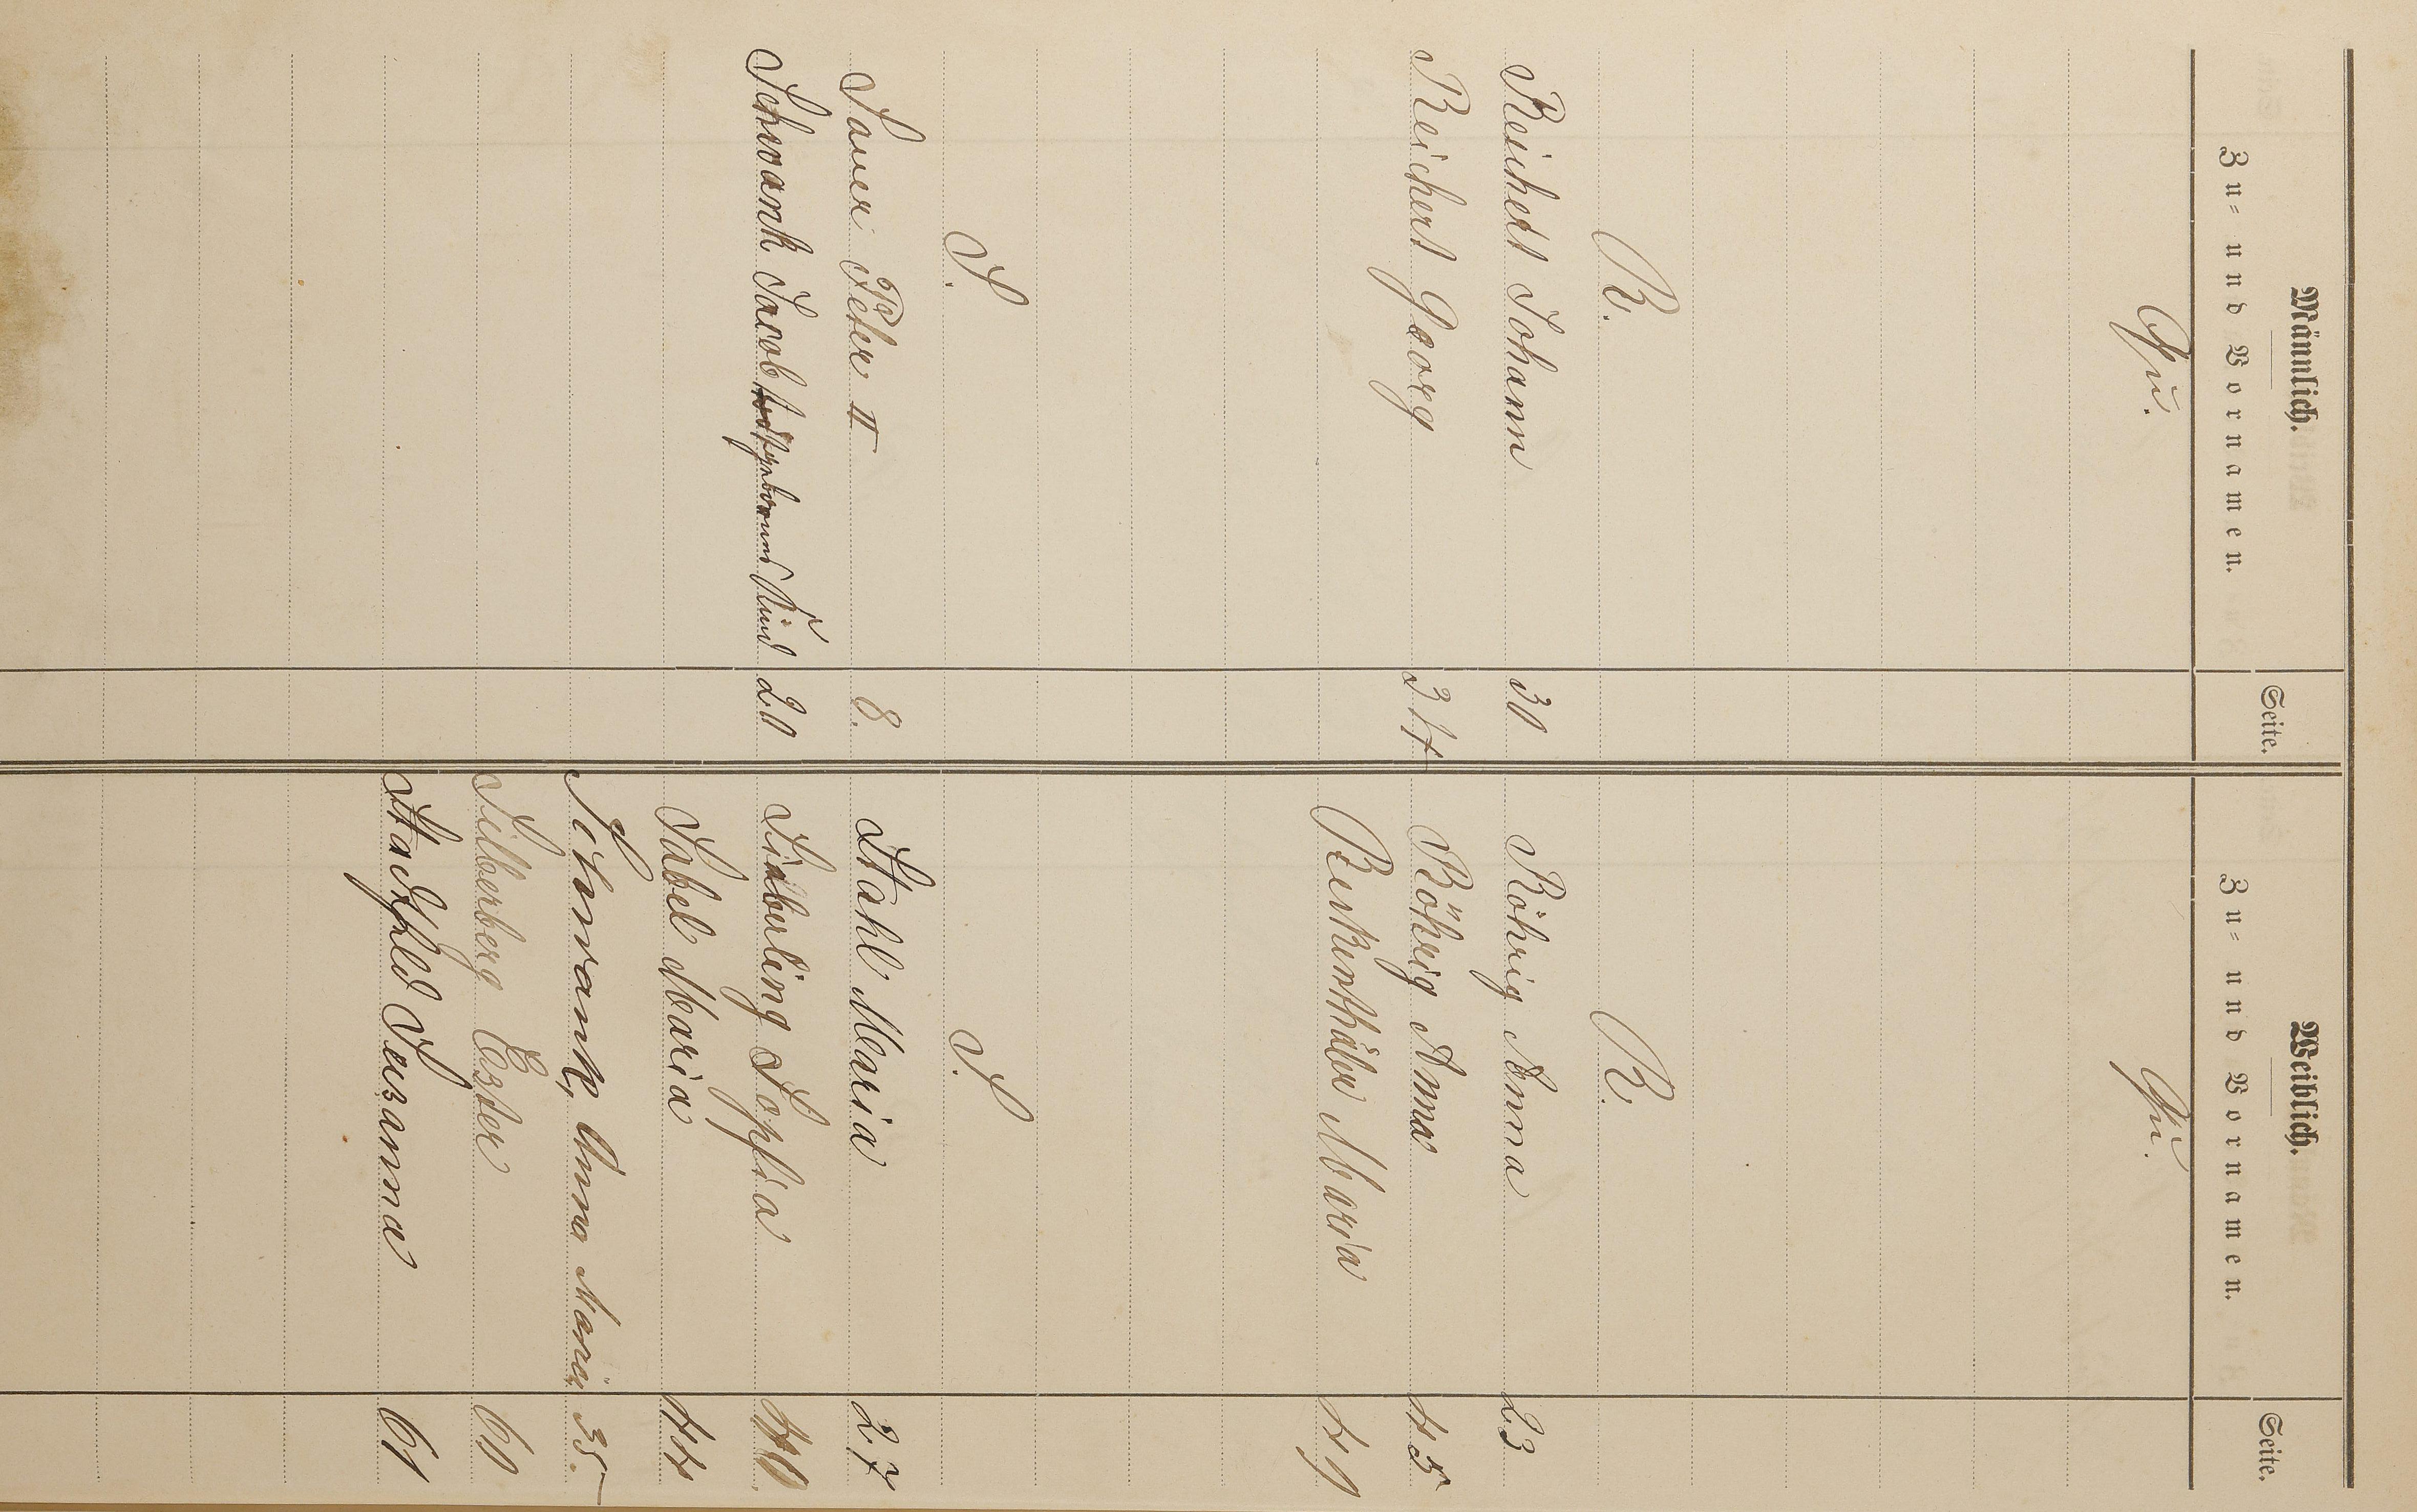 Männlich.
Zu- und Vornamen.
Seite.
Qu.
R.
Reichert Johann 30
Reichert Georg 34
S.
Sauer Peter II 8.
Schwank Jacob todtgebornes Kind 20
Weiblich.
Zu- und Vornamen.
Seite.
Qu.
R.
Röhrig Anna 23
Röhrig Anna 45
Maria 49
S.
Stahl Maria 27
Sieberling Sophia 40
Sabel Maria 44
Schwank, Anna Maria 35
Silberberg Ester 60
Suzanna 61